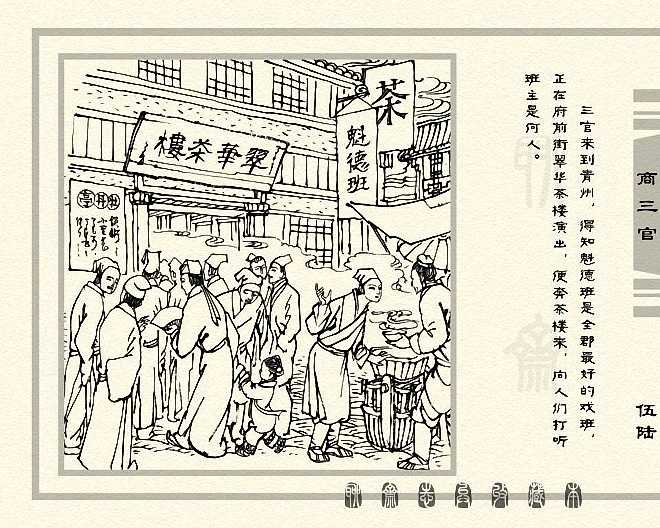 三官来到青州，得知魁德班是全郡最好的戏班，
正在府前街翠华茶楼演出，便奔茶楼来，向人们打听
班主是何人。
商三官
伍陆
茶
魁德班
翠華茶樓
牡丹亭